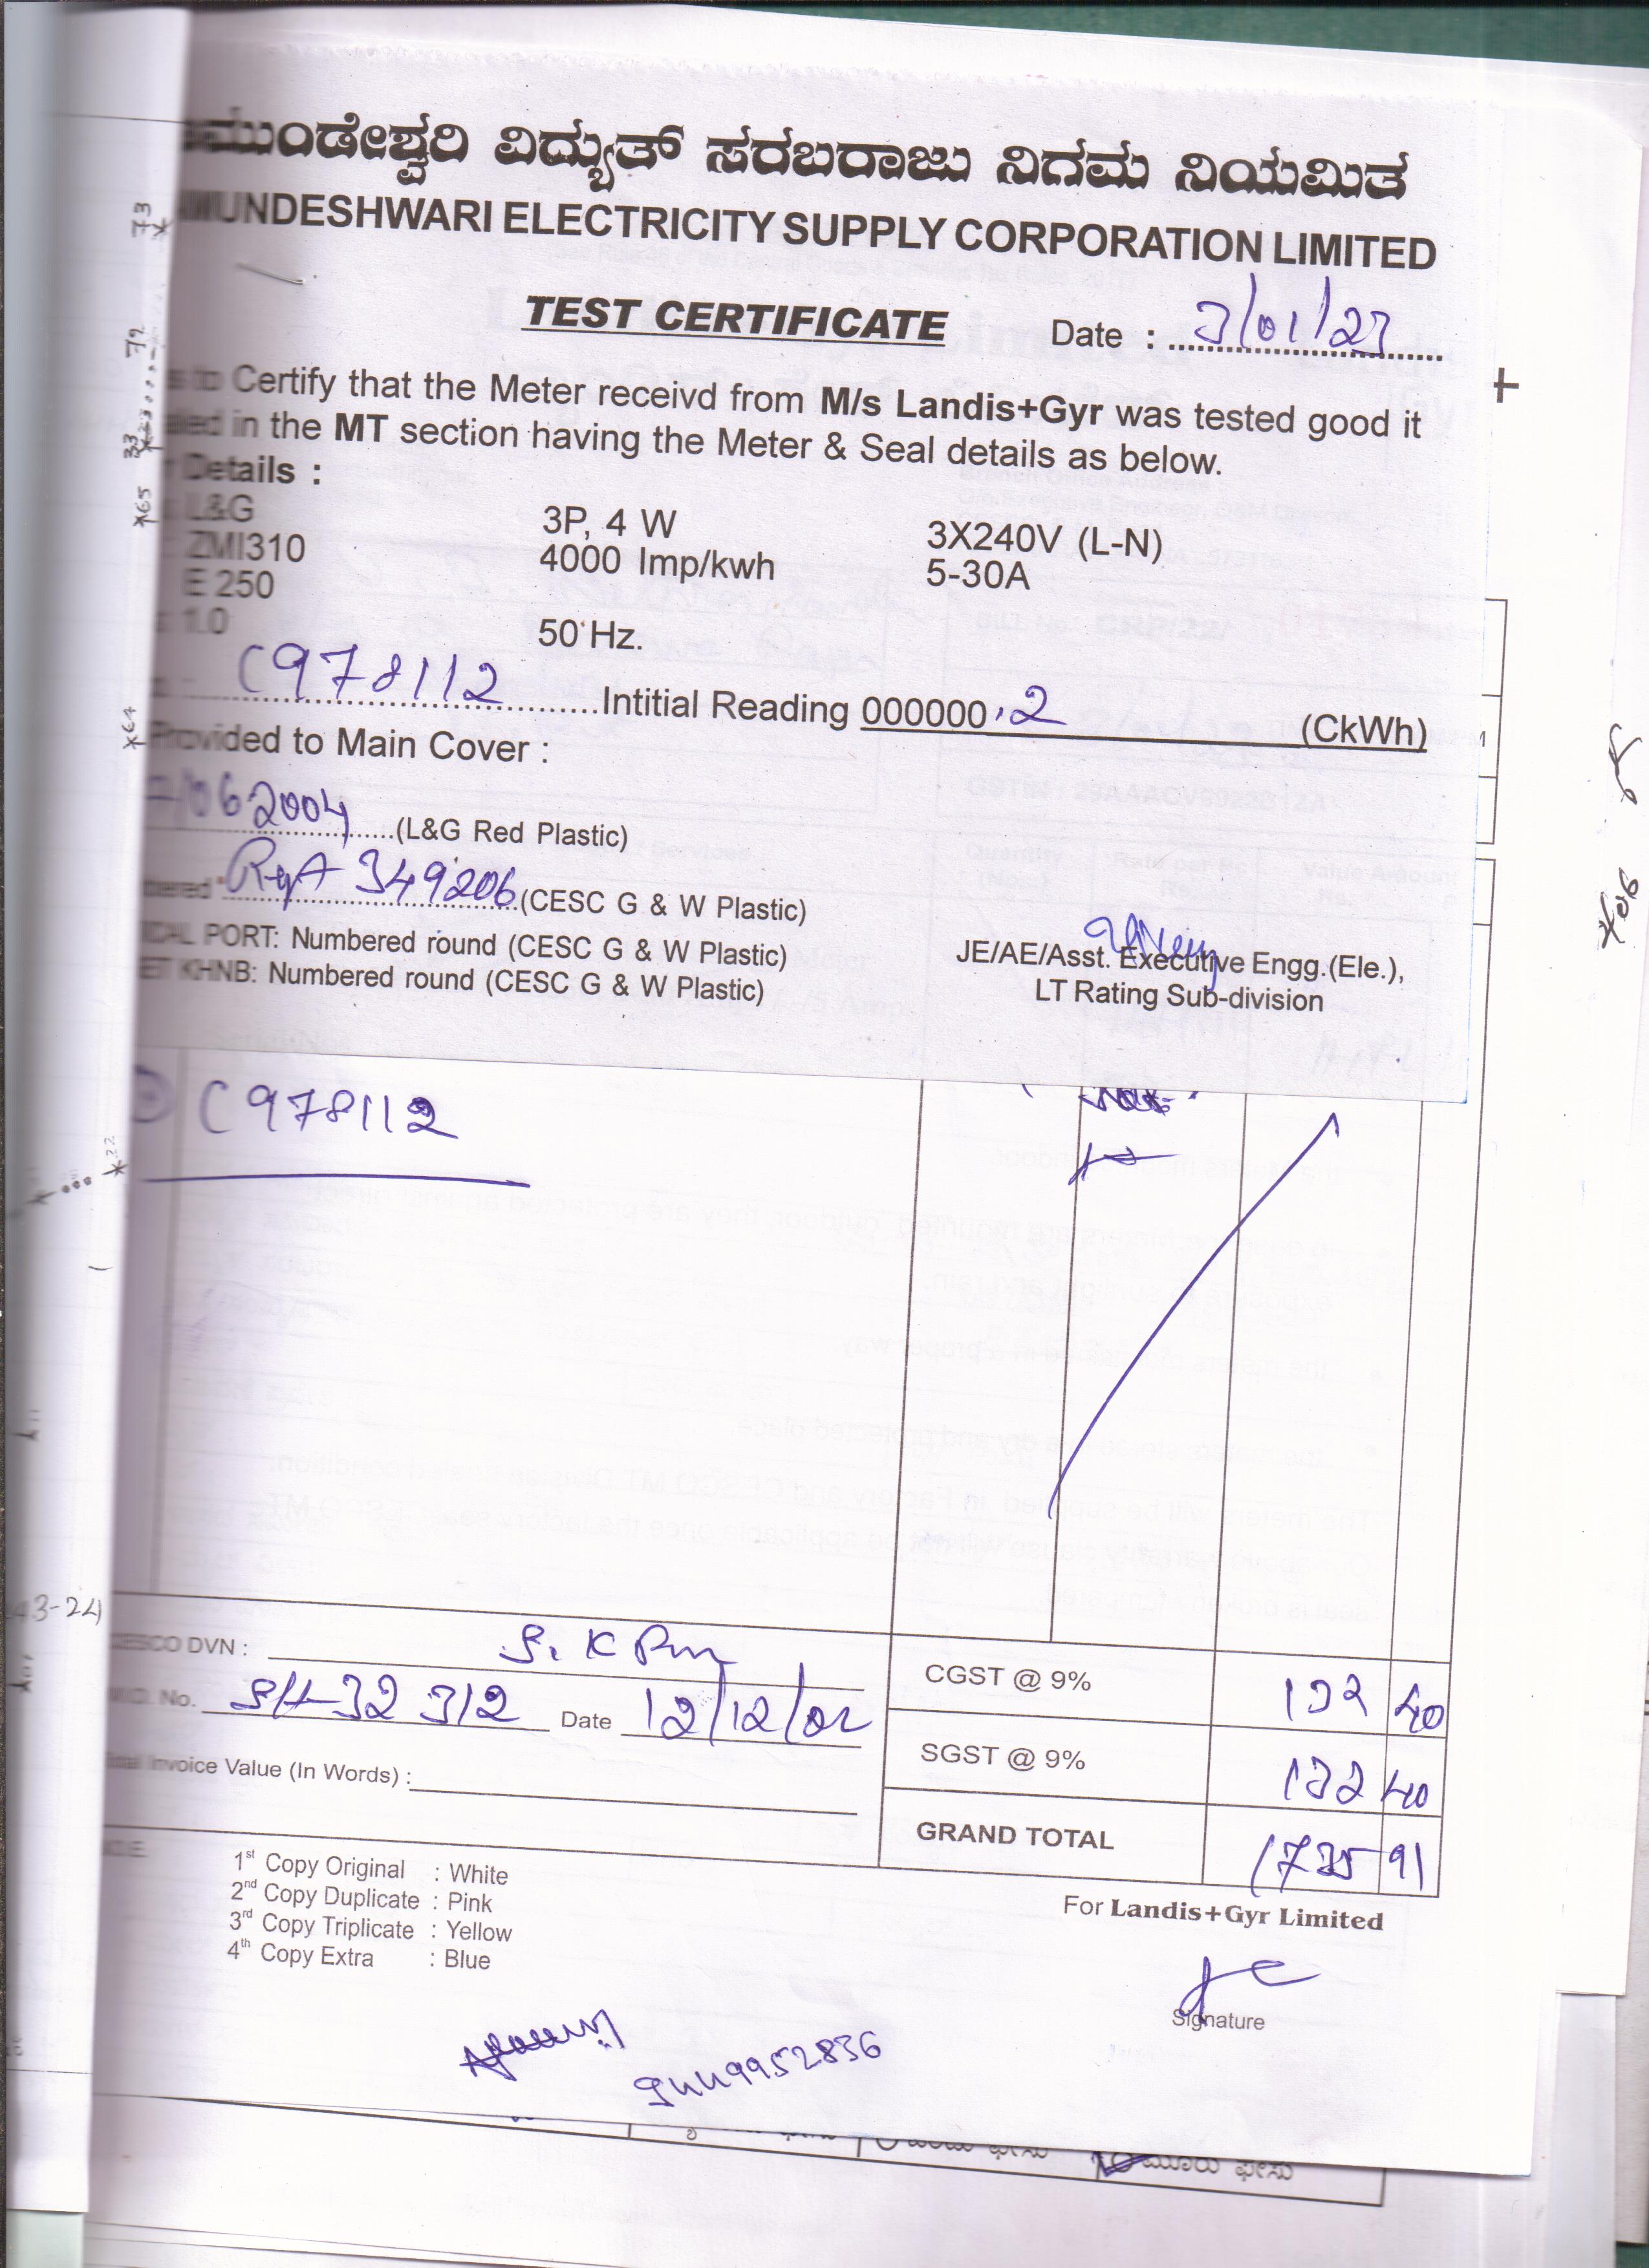 ಮುಂಡೇಶ್ವರಿ ವಿದ್ಯುತ್ ಸರಬರಾಜು ನಿಗಮ ನಿಯಮಿತ
MUNDESHWARI ELECTRICITY SUPPLY CORPORATION LIMITED
TEST CERTIFICATE Date : 3/01/23
to Certify that the Meter receivd from M/s Landis+Gyr was tested good it
in the MT section having the Meter & Seal details as below.
Details :
L&G 3P, 4 W 3X240V (L-N)
ZMI310 4000 Imp/kwh 5-30A
E 250
1.0 50 Hz.
C978112 Intitial Reading 000000.2 (CkWh)
Provided to Main Cover :
062004 (L&G Red Plastic)
349206 (CESC G & W Plastic)
PORT: Numbered round (CESC G & W Plastic)
KHNB: Numbered round (CESC G & W Plastic)
JE/AE/Asst. Executive Engg.(Ele.),
LT Rating Sub-division
C978112
DVN :
No. 32312 Date 12/12/22
Invoice Value (In Words) :
CGST @ 9% 132 40
SGST @ 9% 132 40
GRAND TOTAL 1735 91
1st Copy Original : White
2nd Copy Duplicate : Pink
3rd Copy Triplicate : Yellow
4th Copy Extra : Blue
For Landis+Gyr Limited
Signature
9449952836
ಮೂರು ಫೇಸು